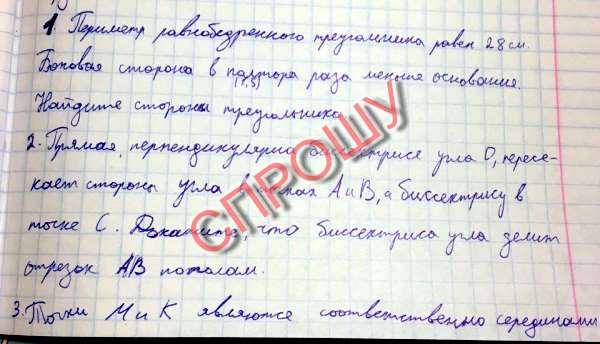 1. Периметр равнобедренного треугольника равен 28 см.
Боковая сторона в полтора раза меньше основания.
(1,5)
Найдите стороны треугольника
2. Прямая, перпендикулярна биссектрисе угла O, пересе-
кает стороны угла в точках A и B, а биссектрису в
точке C. Докажите, что биссектриса угла делит
отрезок AB пополам.
3. Точки M и K являются соответственно серединами
СПРОШУ